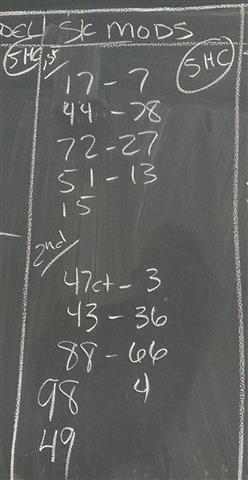 DEL SK MODS
SHC, 1st SHC
17 - 7
44 - 78
72 - 27
51 - 13
15
2nd
47ct - 3
43 - 36
88 - 66
98 4
49